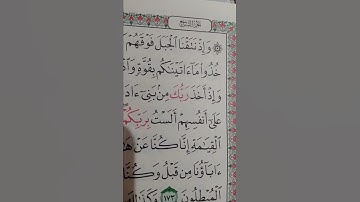 الجزء التاسع
۞ وَإِذْ نَتَقْنَا ٱلْجَبَلَ فَوْقَهُمْ
خُذُوا۟ مَآ ءَاتَيْنَـٰكُم بِقُوَّةٍ
وَإِذْ أَخَذَ رَبُّكَ مِنۢ بَنِىٓ
عَلَىٰٓ أَنفُسِهِمْ أَلَسْتُ بِرَبِّكُمْ
ٱلْقِيَـٰمَةِ إِنَّا كُنَّا عَنْ
ءَابَآؤُنَا مِن قَبْلُ وَكُنَّا
ٱلْمُبْطِلُونَ ١٧٣ وَكَذَٰلِكَ